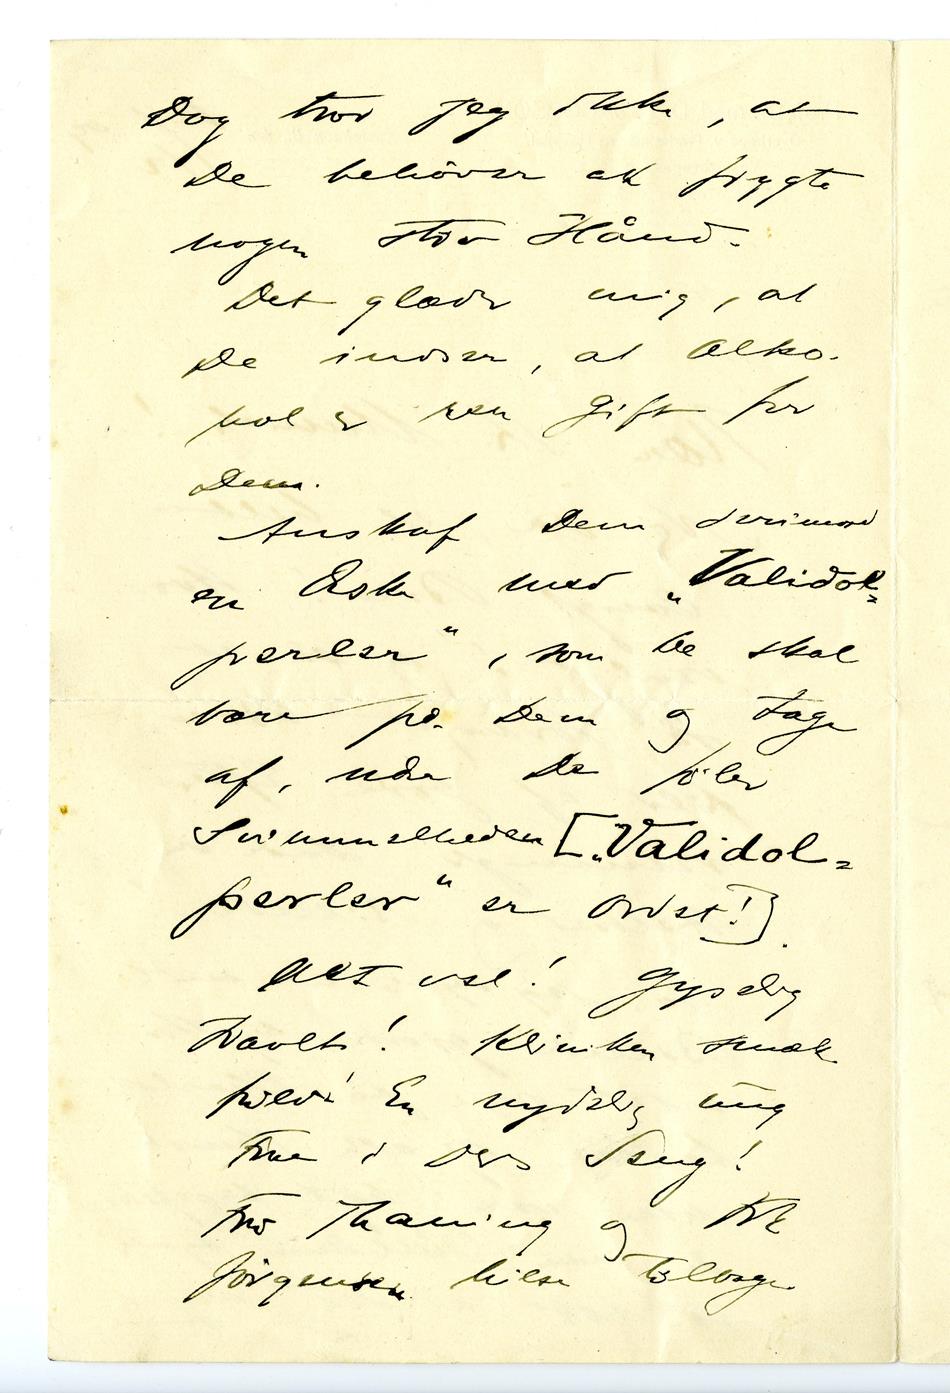 Dog tror jeg ikke, at
De behöver at frygte
nogen stor Hånd.
Det glæder mig, at
De indser, at Alko-
hol er ren Gift for
Dem.
Anskaf Dem
en Æske med „Validol=
perler“, som De skal
bære på Dem og tage
af, når De föler
Svimmelheden [„Validol=
perler“ er Ordet!].
Alt vel! Gyselig
travlt! Kliniken smæk
fuld! En nydelig ung
Frue i Deres Seng!
Frø Thaning og Frk
Jörgensen hilser Tilbage